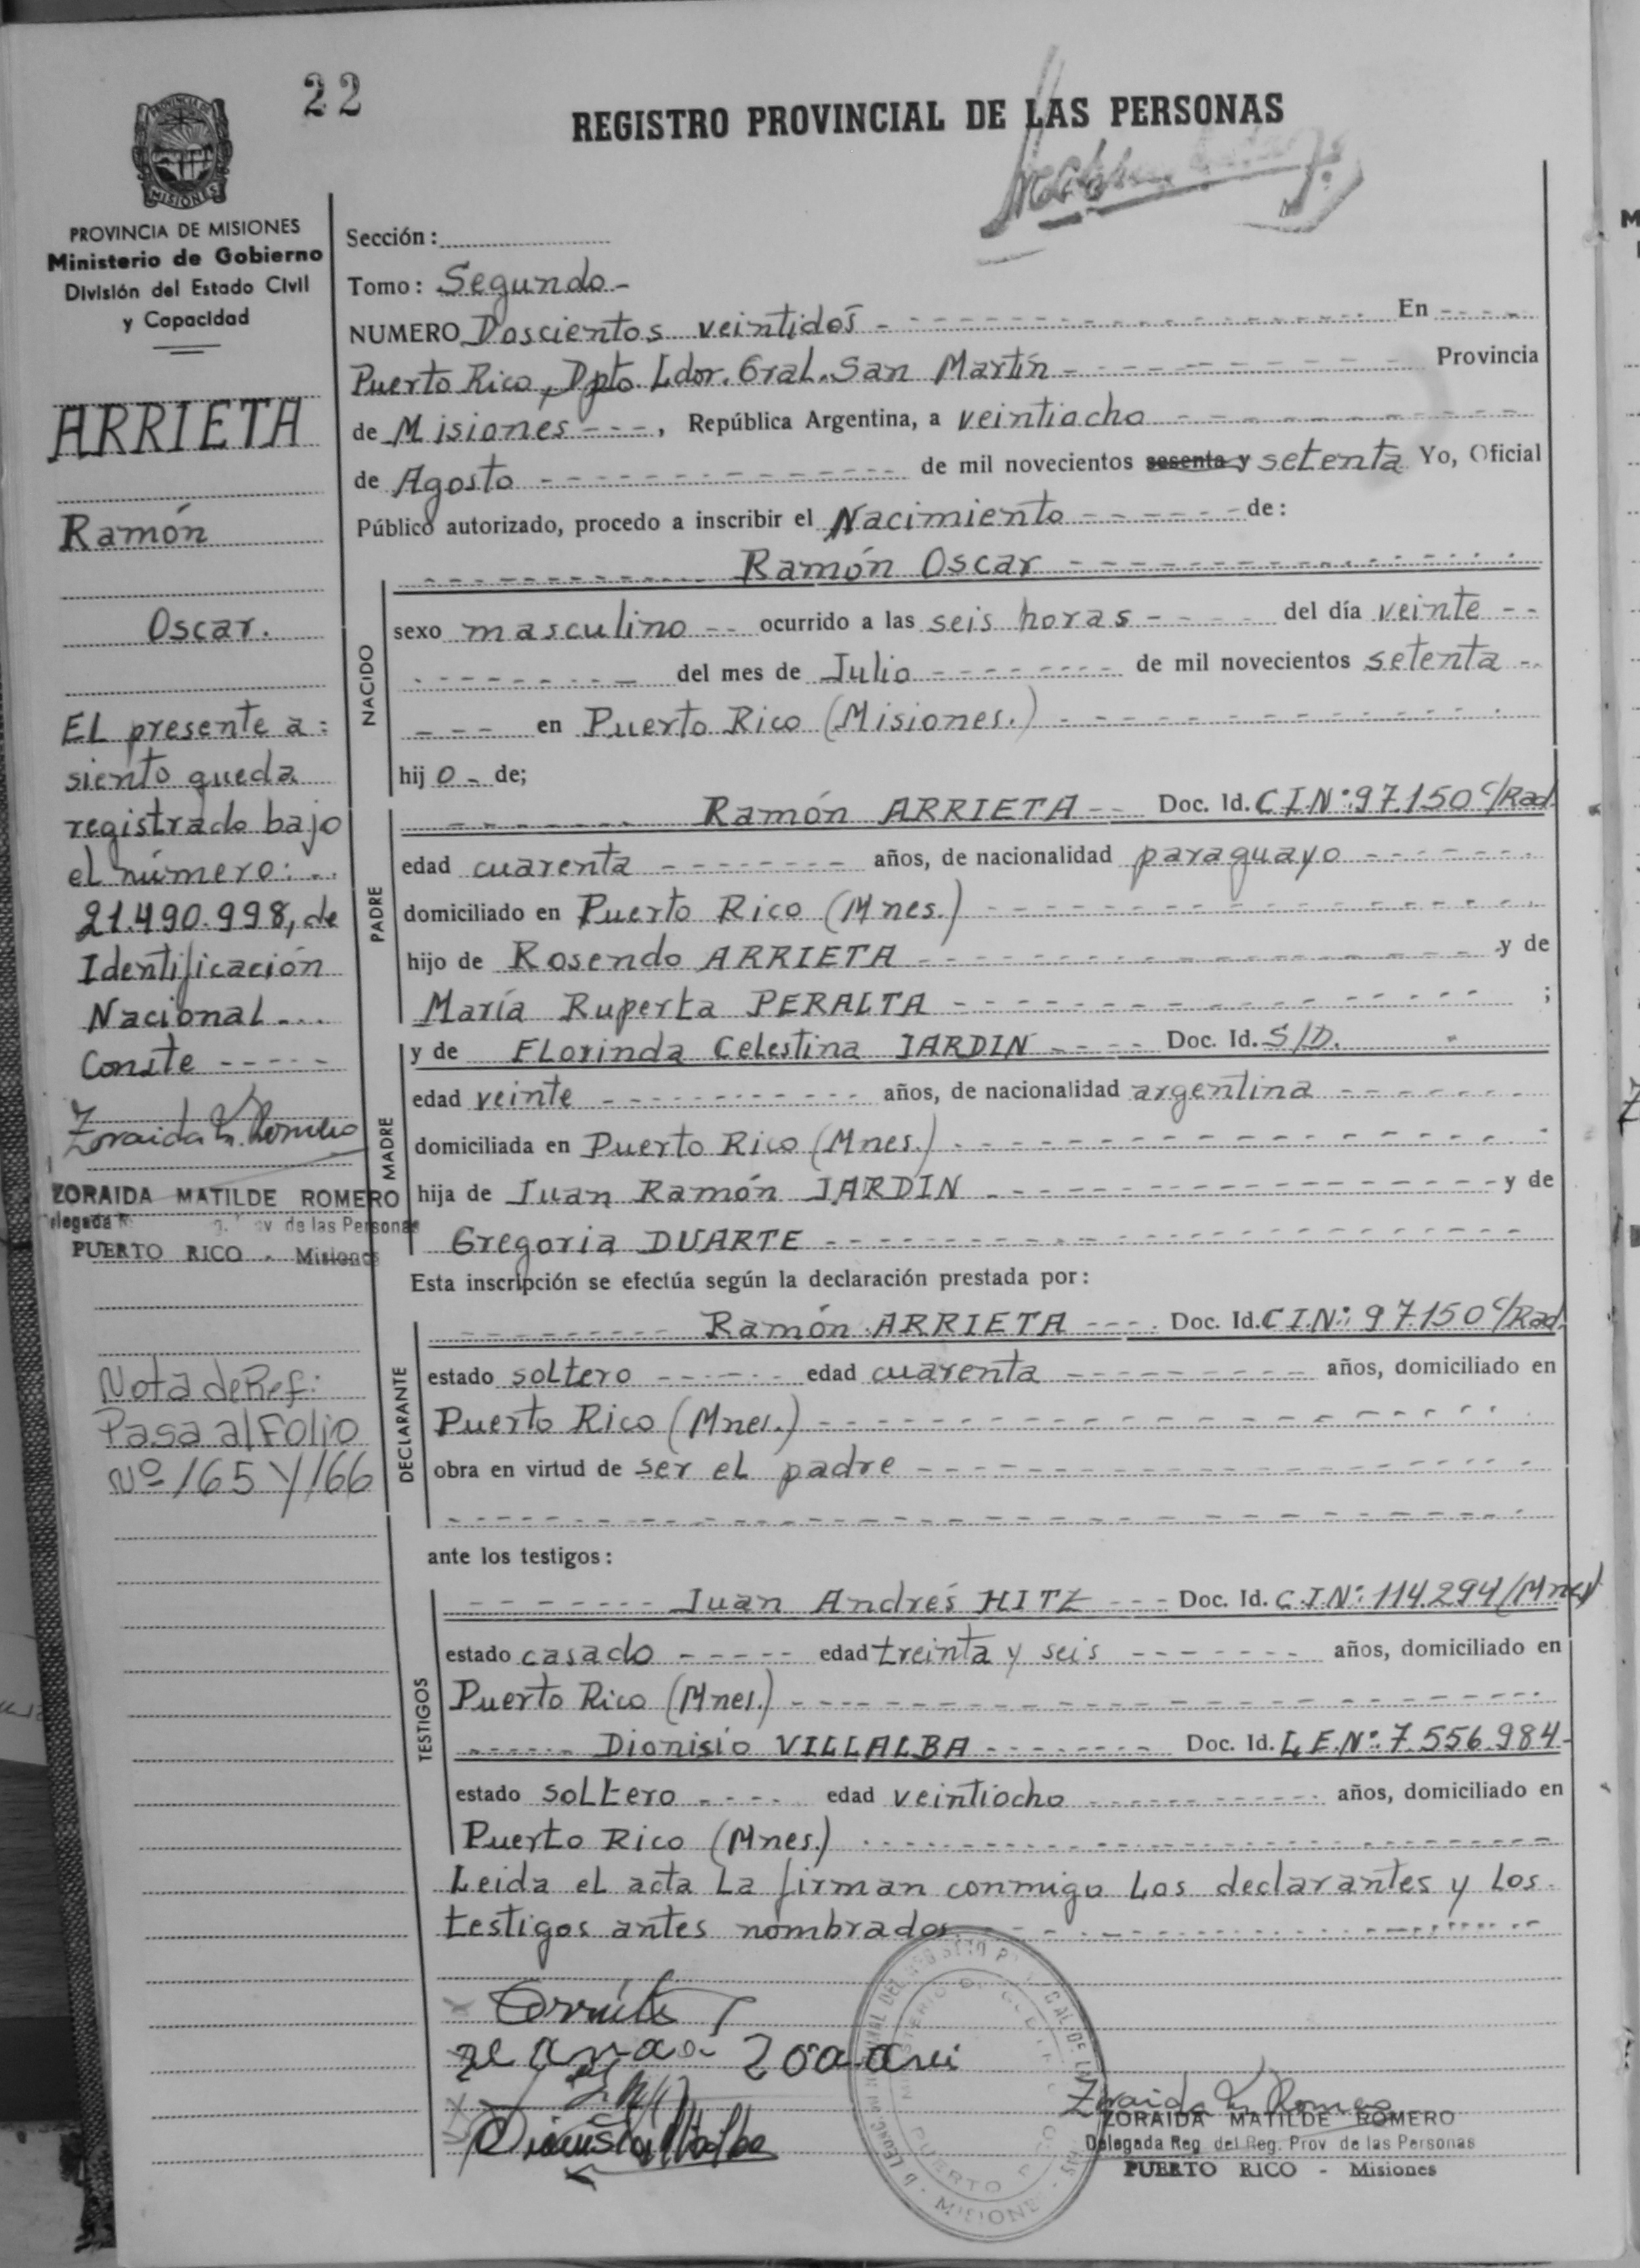 22
REGISTRO PROVINCIAL DE LAS PERSONAS
PROVINCIA DE MISIONES
Ministerio de Gobierno
División del Estado Civil
y Capacidad
ARRIETA
Ramón
Oscar.
El presente a=
siento queda
registrado bajo
el número:
21.490.998, de
Identificación
Nacional
Conste
Zoraida M. Romero
ZORAIDA MATILDE ROMERO
de las Personas
PUERTO RICO - Misiones
Nota de Ref:
Pasa al Folio
Nº 165 y 166
Sección:
Tomo: Segundo
NUMERO Doscientos veintidós En
Puerto Rico, Dpto. Ldor. Gral. San Martín Provincia
de Misiones, República Argentina, a veintiocho
de Agosto de mil novecientos sesenta y setenta Yo, Oficial
Público autorizado, procedo a inscribir el Nacimiento de:
Ramón Oscar
NACIDO
sexo masculino ocurrido a las seis horas del día veinte
del mes de Julio de mil novecientos setenta
en Puerto Rico (Misiones.)
hij o de;
PADRE
Ramón ARRIETA Doc. Id. C.I.Nº: 97.150 c/Rad.
edad cuarenta años, de nacionalidad paraguayo
domiciliado en Puerto Rico (Mnes.)
hijo de Rosendo ARRIETA y de
María Ruperta PERALTA ;
MADRE
y de Florinda Celestina JARDIN Doc. Id. S/D.
edad veinte años, de nacionalidad argentina
domiciliada en Puerto Rico (Mnes.)
hija de Juan Ramón JARDIN y de
Gregoria DUARTE
Esta inscripción se efectúa según la declaración prestada por:
DECLARANTE
Ramón ARRIETA Doc. Id. C.I.Nº: 97.150 c/Rad.
estado soltero edad cuarenta años, domiciliado en
Puerto Rico (Mnes.)
obra en virtud de ser el padre
ante los testigos:
TESTIGOS
Juan Andrés HITZ Doc. Id. C.I.Nº: 114.294/Mnes
estado casado edad treinta y seis años, domiciliado en
Puerto Rico (Mnes.)
Dionisio VILLALBA Doc. Id. L.E.Nº: 7.556.984
estado soltero edad veintiocho años, domiciliado en
Puerto Rico (Mnes.)
Leida el acta la firman conmigo los declarantes y los
testigos antes nombrados
Zoraida M. Romero
ZORAIDA MATILDE ROMERO
Delegada Reg. del Reg. Prov de las Personas
PUERTO RICO - Misiones